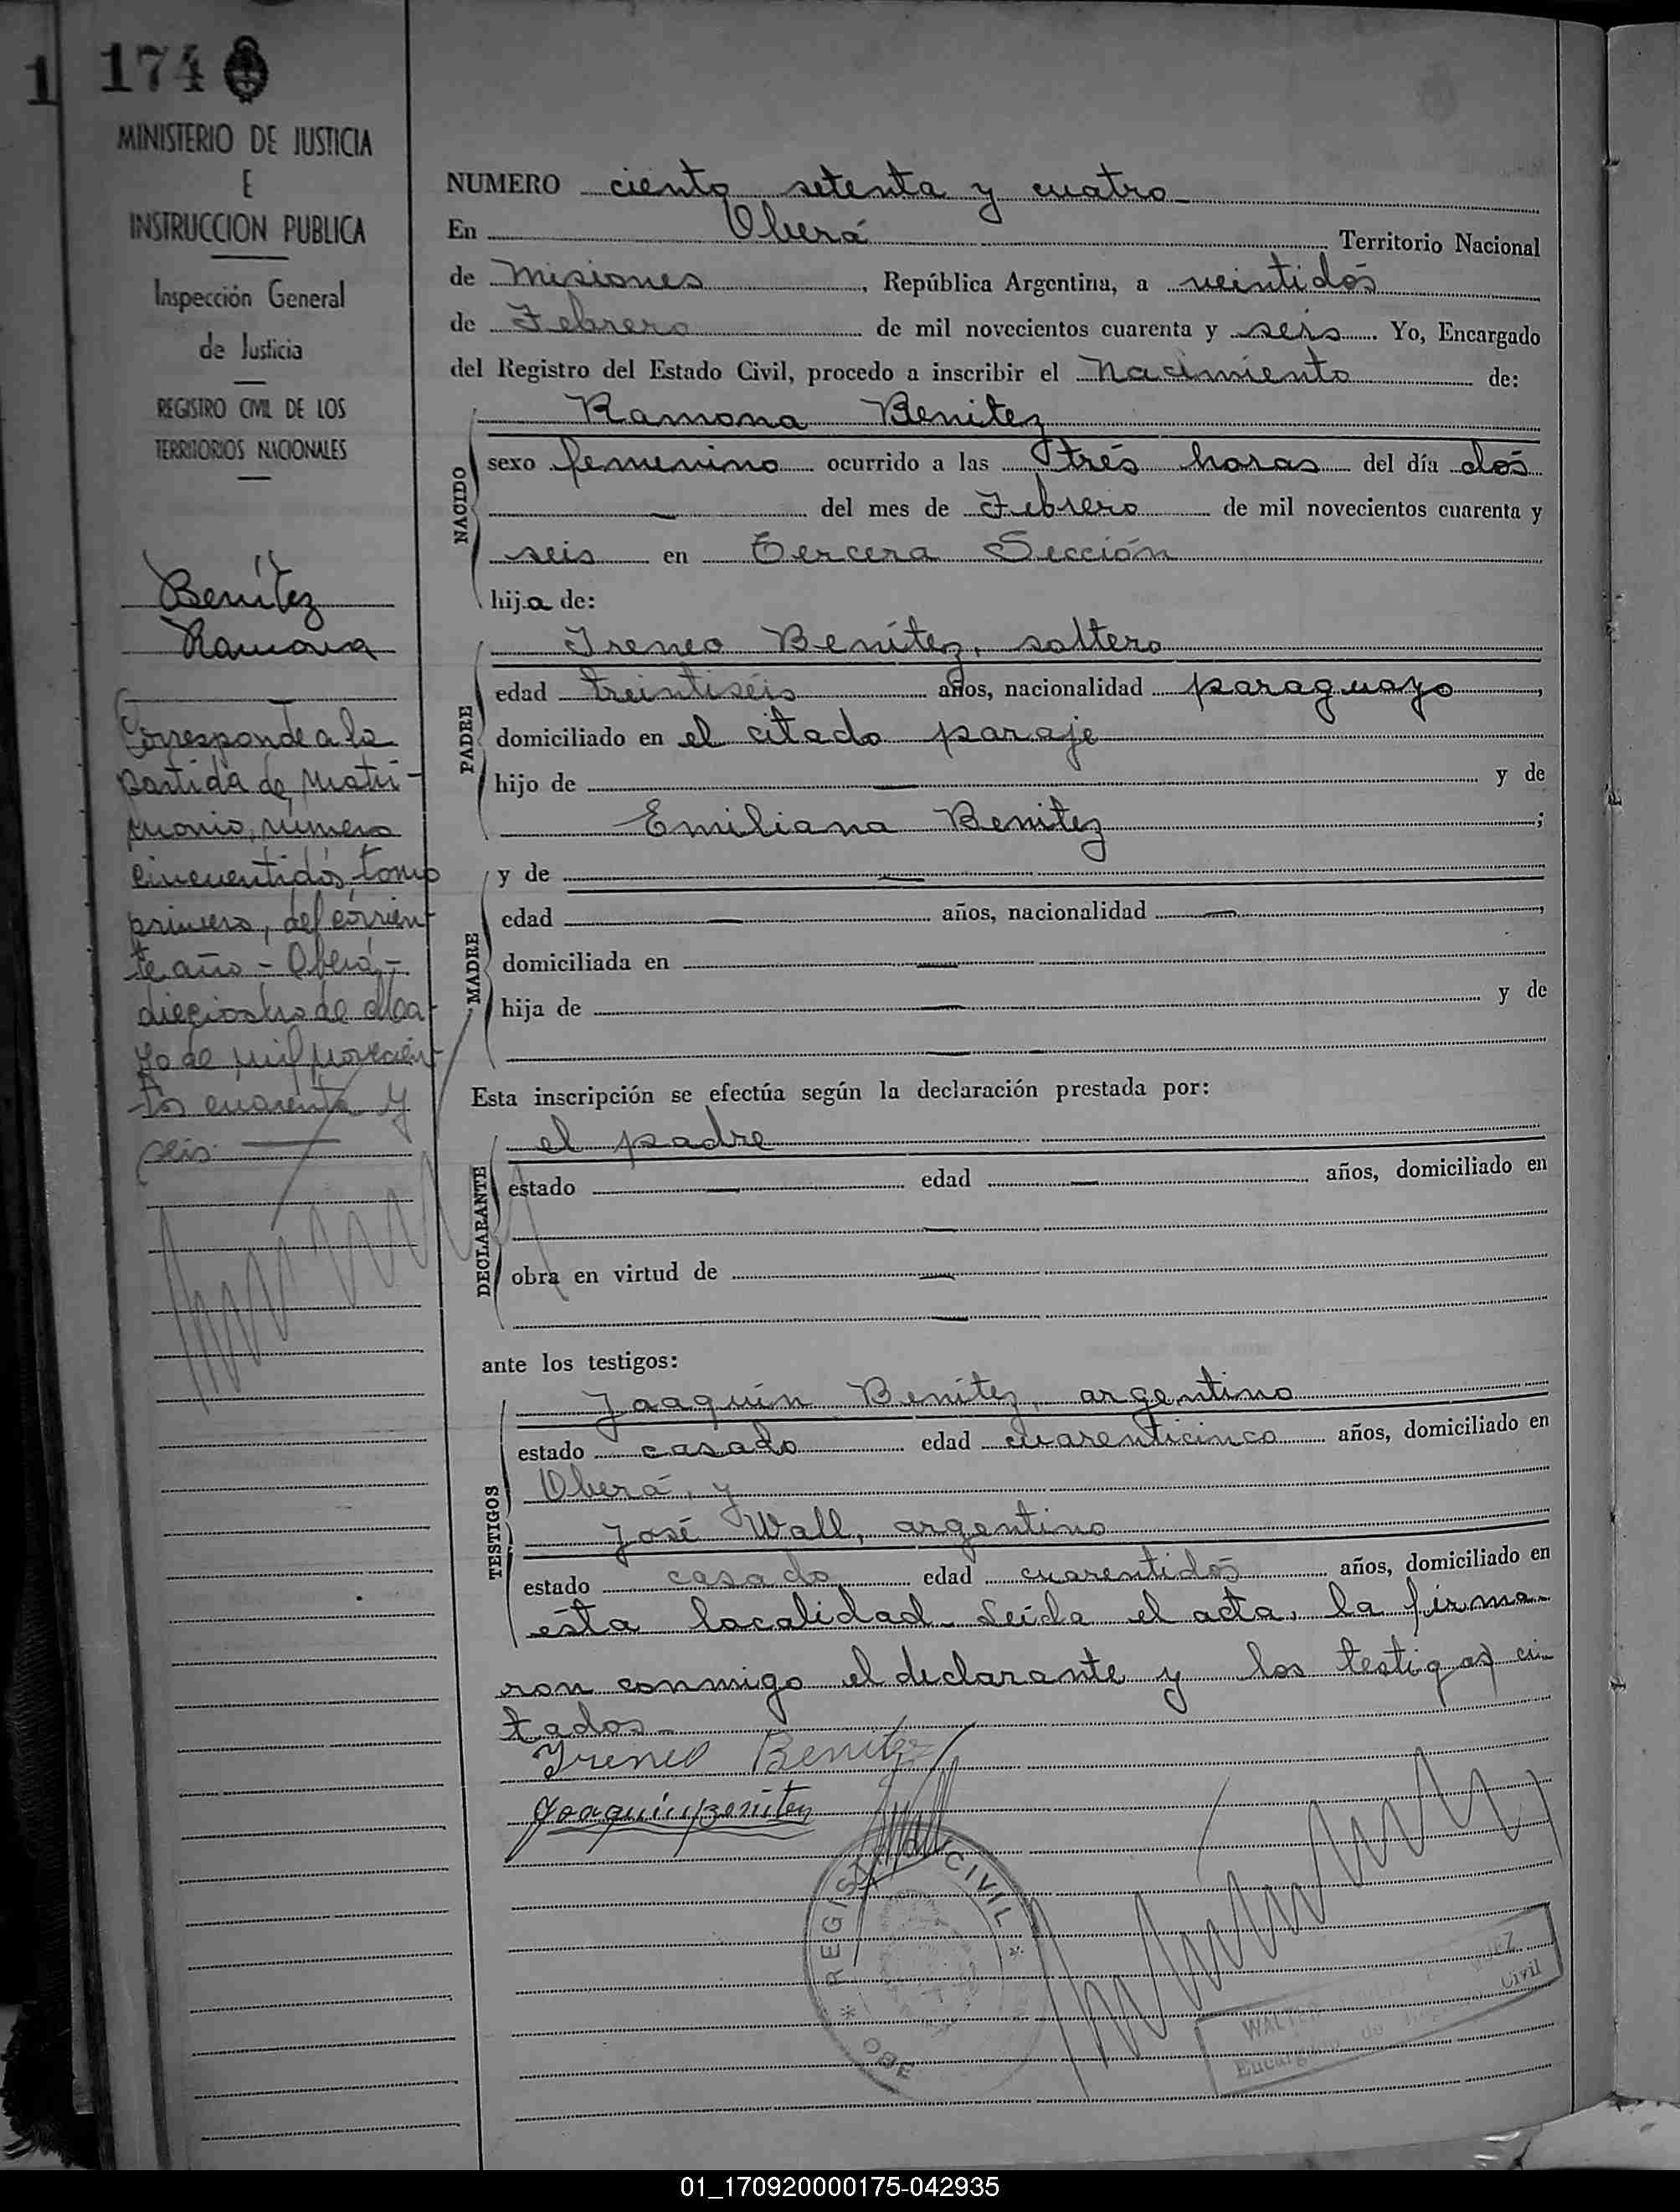 1 174
MINISTERIO DE JUSTICIA
E
INSTRUCCION PUBLICA
Inspección General
de Justicia
REGISTRO CIVIL DE LOS
TERRITORIOS NACIONALES
Benítez
Ramona
Corresponde a la
partida de Matri-
monio, número
cincuentidós, tomo
primero, del corrien-
te año - Oberá,-
dieciocho de Ma-
yo de mil novecien-
tos cuarenta y
seis.
NUMERO ciento setenta y cuatro
En Oberá Territorio Nacional
de Misiones, República Argentina, a veintidós
de Febrero de mil novecientos cuarenta y seis. Yo, Encargado
del Registro del Estado Civil, procedo a inscribir el Nacimiento de:
NACIDO
Ramona Benitez
sexo femenino ocurrido a las trés horas del día dos
del mes de Febrero de mil novecientos cuarenta y
seis en Tercera Sección
hija de:
PADRE
Ireneo Benítez, soltero
edad treintiséis años, nacionalidad paraguayo,
domiciliado en el citado paraje
hijo de — y de
Emiliana Benitez;
MADRE
y de —
edad — años, nacionalidad —,
domiciliada en —
hija de — y de
—
Esta inscripción se efectúa según la declaración prestada por:
DECLARANTE
el padre
estado — edad — años, domiciliado en
—
obra en virtud de —
—
ante los testigos:
TESTIGOS
Joaquín Benítez, argentino
estado casado edad cuarenticinco años, domiciliado en
Oberá, y
José Wall, argentino
estado casado edad cuarentidós años, domiciliado en
ésta localidad. Leída el acta, la firma-
ron conmigo el declarante y los testigos ci-
tados.-
Ireneo Benitez
Joaquin Benitez
REGISTRO CIVIL
OBE
WALTER
Encargado de Civil
01_170920000175-042935